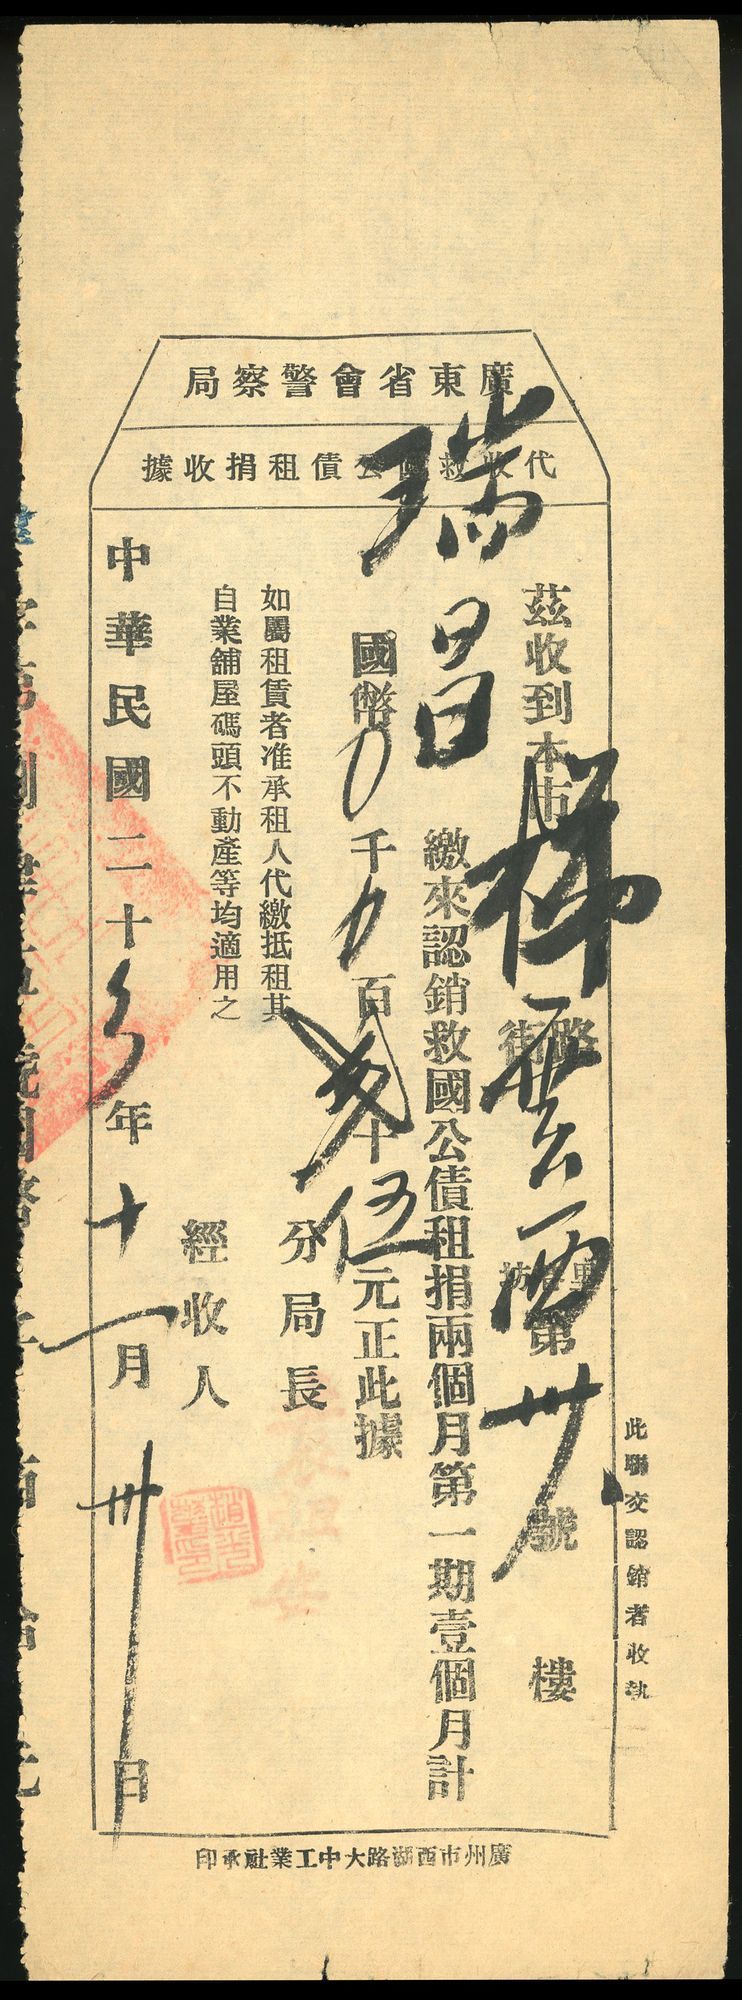 廣東省會警察局
代收救國公債租捐收據
此聯交認銷者收執
茲收到本市梯雲西路街里坊第卅號 樓
瑞昌繳來認銷救國公債租捐兩個月第一期壹個月計
國幣〇千〇百 十伍元正此據
如屬租賃者准承租人代繳抵租其
自業舖屋碼頭不動產等均適用之
分局長
經收人
中華民國二十 年十一月卅日
廣州市西湖路大中工業社承印